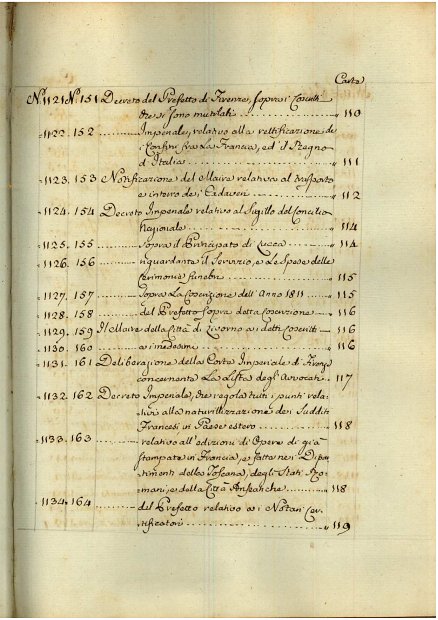 Carte
N.° 1121. N.° 151. Decreto del Prefetto di Firenze, sopra i Coscritti
che si sono mutilati ........ " 110
" 1122. 152 ........ Imperiale, relativo alla rettificazione de
i Confini fra La Francia, ed il Regno
d'Italia ........ " 111
" 1123. 153 Notificazione del Maire relativa al trasporto
e interro dei Cadaveri ........ " 112
" 1124. 154 Decreto Imperiale relativo al Sugillo del Concilio
Nazionale ........ " 114
" 1125. 155 ........ Sopra il Principato di Lucca ........ " 114
" 1126. 156 ........ riguardante il Servizio, e Le Spese delle
Cerimonie funebri ........ " 115
" 1127. 157 ........ Sopra La Coscrizione dell'Anno 1811 ........ " 115
" 1128. 158 ........ del Prefetto Sopra detta Coscrizione ........ " 116
" 1129. 159 Il Maire della Città di Livorno a i detti Coscritti ........ " 116
" 1130. 160 ........ a i medesimi ........ " 116
" 1131. 161 Deliberazione della Corte Imperiale di Firenze
concernente La Lista degli Avvocati .. " 117
" 1132. 162 Decreto Imperiale, che regola tutti i punti rela-
tivi alla naturalizzazione dei Sudditi
Francesi in Paese estero ........ " 118
" 1133. 163 ........ relativo all'edizioni di Opere di già
stampate in Francia, e fatte nei Dipar-
timenti della Toscana, degli Stati Ro-
mani, e della Città Anseatiche ........ " 118
" 1134. 164 ........ del Prefetto relativo a i Notari Cer-
tificatori ........ " 119